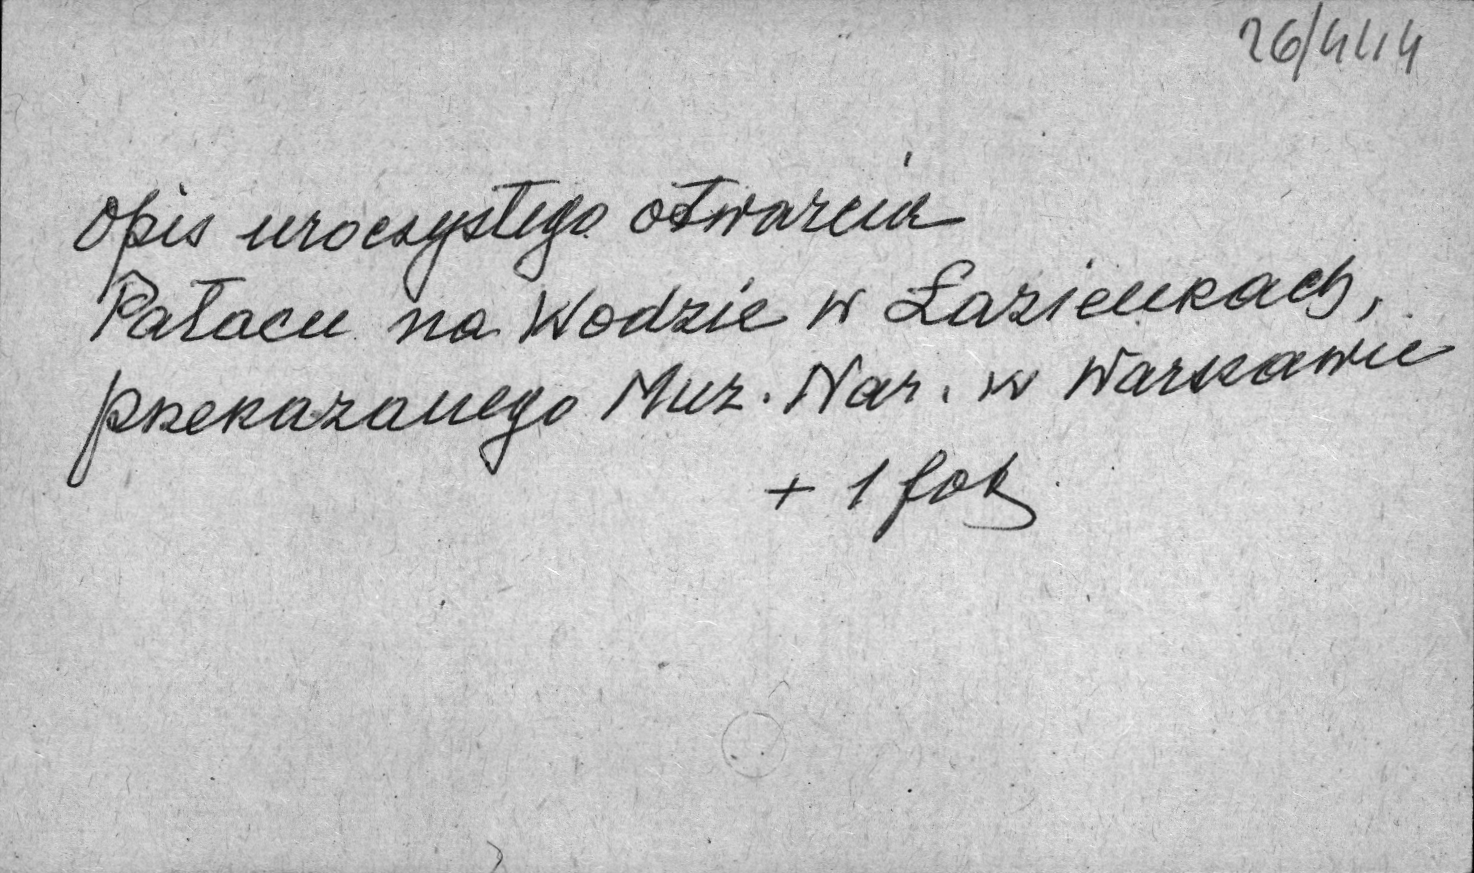 26/4414
Opis uroczystego otwarcia
Pałacu na Wodzie w Łazienkach,
przekazanego Muz. Nar. w Warszawie
+ 1 fot